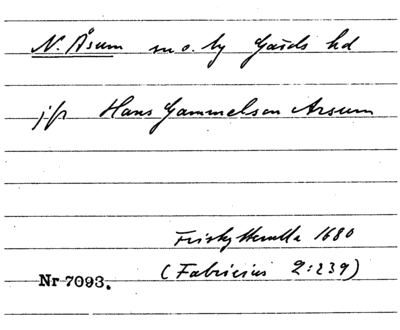 N. Åsum sn o. by Gärds hd
jfr Hans Gammelsen Arsum
Friskytterulla 1680
(Fabricius 2:239)
Nr 7093.